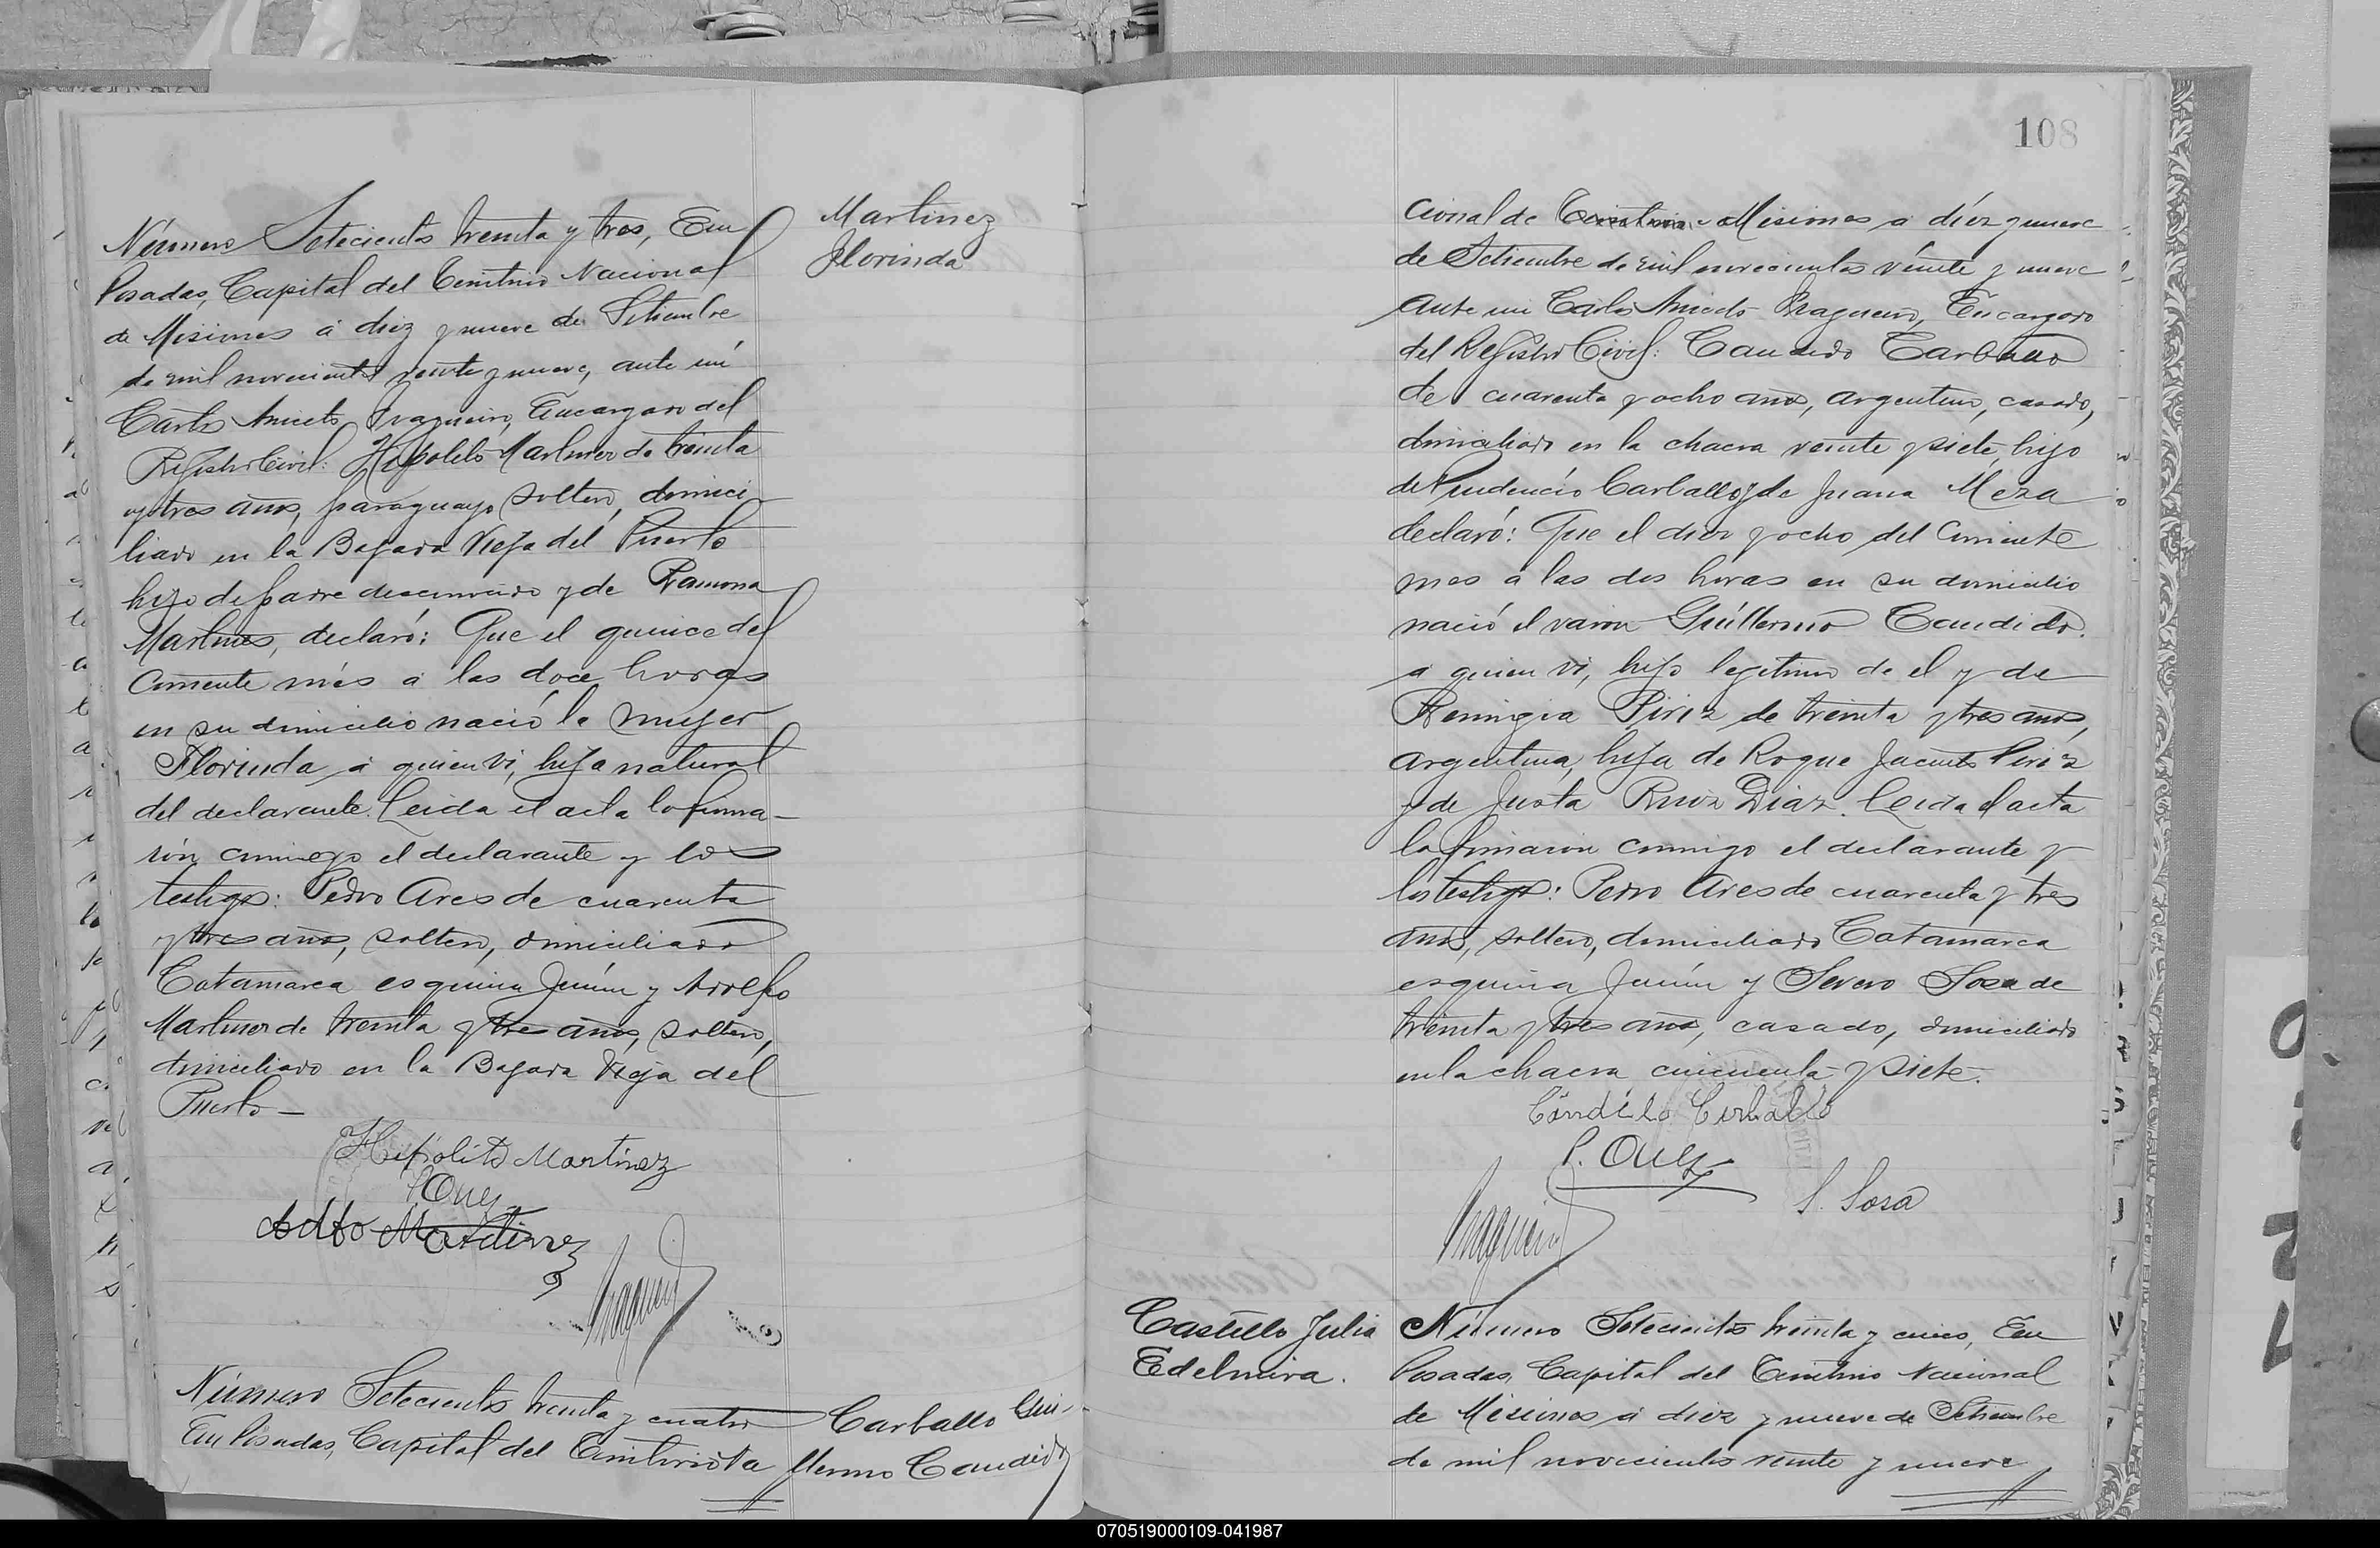 Número Setecientos treinta y tres, En
Posadas, Capital del Territorio Nacional
de Misiones á diez y nueve de Setiembre
de mil novecientos veinte y nueve, ante mí
Carlos Aniceto Fragueiro, Encargado del
Registro Civil: Hipólito Martinez de treinta
y tres años, paraguayo, soltero, domici
liado en la Bajada Vieja del Puerto
hijo de padre desconocido y de Ramona
Martines, declaró: Que el quince del
corriente més á las doce horas
en su domicilio nació la mujer
Florinda, á quien vi, hija natural
del declarante. Leida el acta la firma-
rón conmigo el declarante y los
testigos: Pedro Ares de cuarenta
y tres años, soltero, domiciliado
Catamarca esquina Junín y Adolfo
Martinez de treinta y tres años, soltero,
domiciliado en la Bajada Vieja del
Puerto—
Hipólito Martínez
Adolfo Martinez
Fragueiro
Martinez
Florinda
Número Setecientos treinta y cuatro
En Posadas, Capital del Territorio Na
Carballo Gui-
llermo Candido
108
cional de Misiones á diéz y nueve
de Setiembre de mil novecientos veinte y nueve
ante mi Carlos Aniceto Fragueiro, Encargado
del Registro Civil: Candido Carballo
de cuarenta y ocho años, argentino, casado,
domiciliado en la chacra veinte y siete, hijo
de Prudencio Carballo y de Juana Meza
declaró: Que el diez y ocho del corriente
mes á las dos horas en su domicilio
nació el varon Guillermo Candido.
á quien vi, hijo legitimo de el y de
Remigia Piriz de treinta y tres años,
argentina, hija de Roque Jacinto Piriz
y de Justa Ruiz Diaz. Leida el acta
la firmaron conmigo el declarante y
los testigos: Pedro Ares de cuarenta y tres
años, soltero, domiciliado Catamarca
esquina Junín y Severo Sosa de
treinta y tres años, casado, domiciliado
en la chacra cincuenta y siete.
Cándido Carballo
S. Sosa
Fragueiro
Castillo Julia
Edelmira.
Número Setecientos treinta y cinco, En
Posadas, Capital del Territorio Nacional
de Misiones á diez y nueve de Setiembre
de mil novecientos veinte y nueve
070519000109-041987